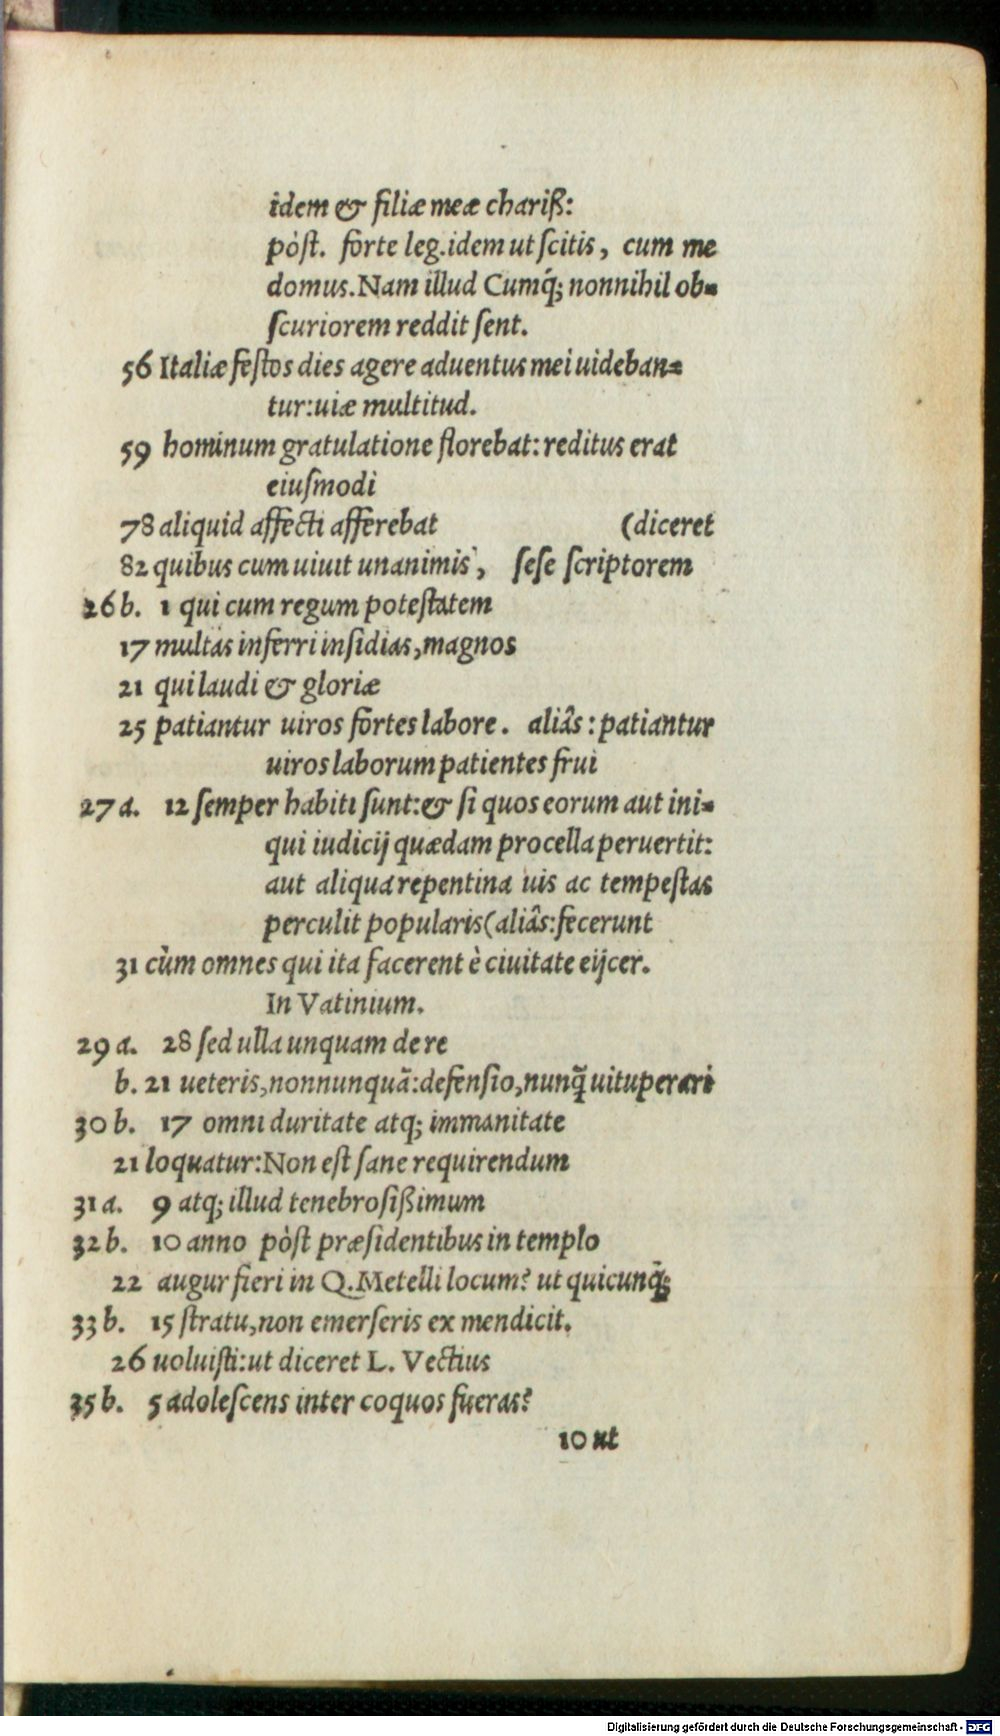 idem & filiæ meæ chariß:
pòſt. forte leg. idem ut ſcitis, cum me
domus. Nam illud Cumq́; nonnihil ob-
ſcuriorem reddit ſent.
56 Italiæ feſtos dies agere aduentus mei uideban-
tur: uiæ multitud.
59 hominum gratulatione florebat: reditus erat
eiuſmodi
78 aliquid affecti afferebat (diceret
82 quibus cum uiuit unanimis, ſeſe ſcriptorem
26 b. 1 qui cum regum poteſtatem
17 multas inferri inſidias, magnos
21 qui laudi & gloriæ
25 patiantur uiros fortes labore. aliâs: patiantur
uiros laborum patientes frui
27 a. 12 ſemper habiti ſunt: & ſi quos eorum aut ini-
qui iudicij quædam procella peruertit:
aut aliqua repentina uis ac tempeſtas
perculit popularis (aliâs: fecerunt
31 cùm omnes qui ita facerent è ciuitate eijcer.
In Vatinium.
29 a. 28 ſed ulla unquam de re
b. 21 ueteris, nonnunquã: defenſio, nunq̃ uituperari
30 b. 17 omni duritate atq; immanitate
21 loquatur: Non eſt ſane requirendum
31 a. 9 atq; illud tenebroſißimum
32 b. 10 anno pòſt præſidentibus in templo
22 augur fieri in Q. Metelli locum? ut quicunq́;
33 b. 15 ſtratu, non emerſeris ex mendicit.
26 uoluiſti: ut diceret L. Vectius
35 b. 5 adoleſcens inter coquos fueras?
10 ut
Digitalisierung gefördert durch die Deutsche Forschungsgemeinschaft - DFG